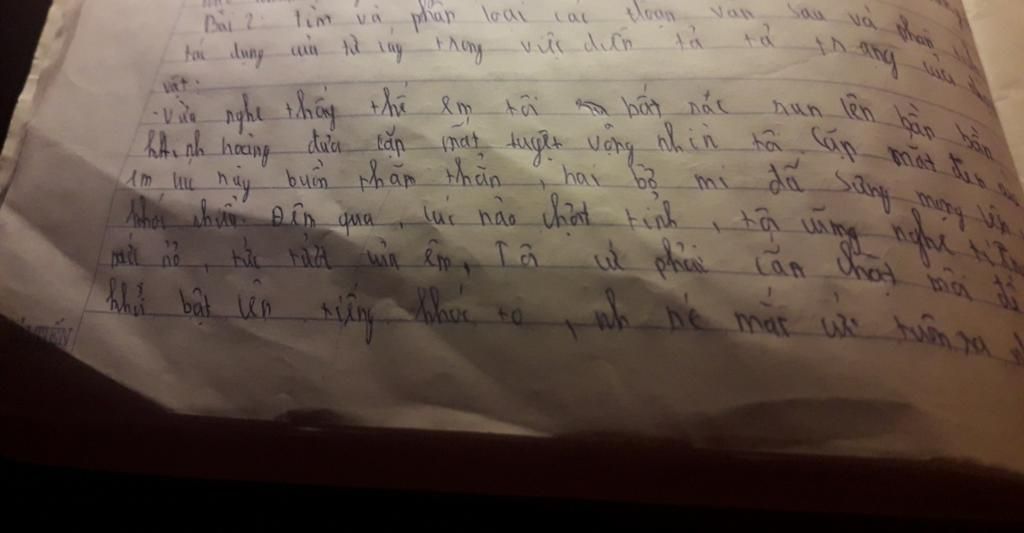 Bài 2: Tìm và phân loại các đoạn văn sau và phân
tác dụng của từ láy trong việc diễn tả tả trạng của
vật:
- Vừa nghe thấy thế em tôi bất nắc nun lên bần bần
kinh hoàng đưa cặp mắt tuyệt vọng nhìn tôi. Cặp mắt đen
em lúc này buồn thăm thẳn, hai bờ mi đã sưng mọng lên
khóc nhiều. Đêm qua, lúc nào chợt tỉnh, tôi cũng nghe tiếng
nở, tức tưởi của em, Tôi cứ phải cắn chặt môi để
khỏi bật lên tiếng khóc to, nh né mắt cứ tuôn ra